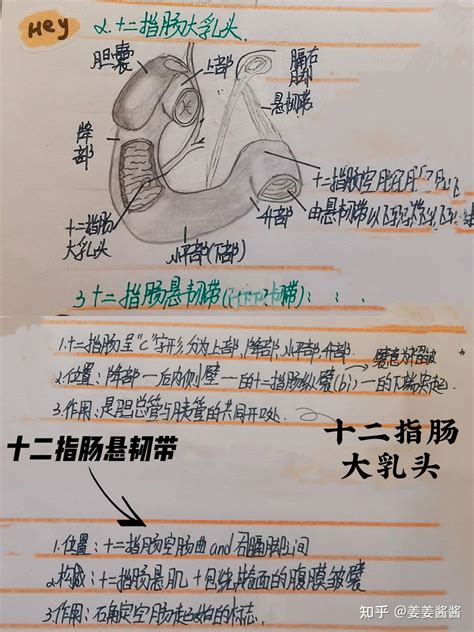 Hey
2.十二指肠大乳头.
胆囊
上部
膈右脚
悬韧带
降部
十二指肠空肠曲
由悬韧带
十二指肠大乳头
升部
水平部(下部)
3十二指肠悬韧带
1.十二指肠呈"C"字形,分为上部,降部,水平部,升部.
2.位置:降部一后内侧壁一的十二指肠纵襞(bì)一的下端突起.
3.作用:是胆总管与胰管的共同开口处.
十二指肠悬韧带
十二指肠
大乳头
1.位置:十二指肠空肠曲and右膈脚之间
2.构成:十二指肠悬肌+包绕其表面的腹膜皱襞
3.作用:
知乎 @姜姜酱酱